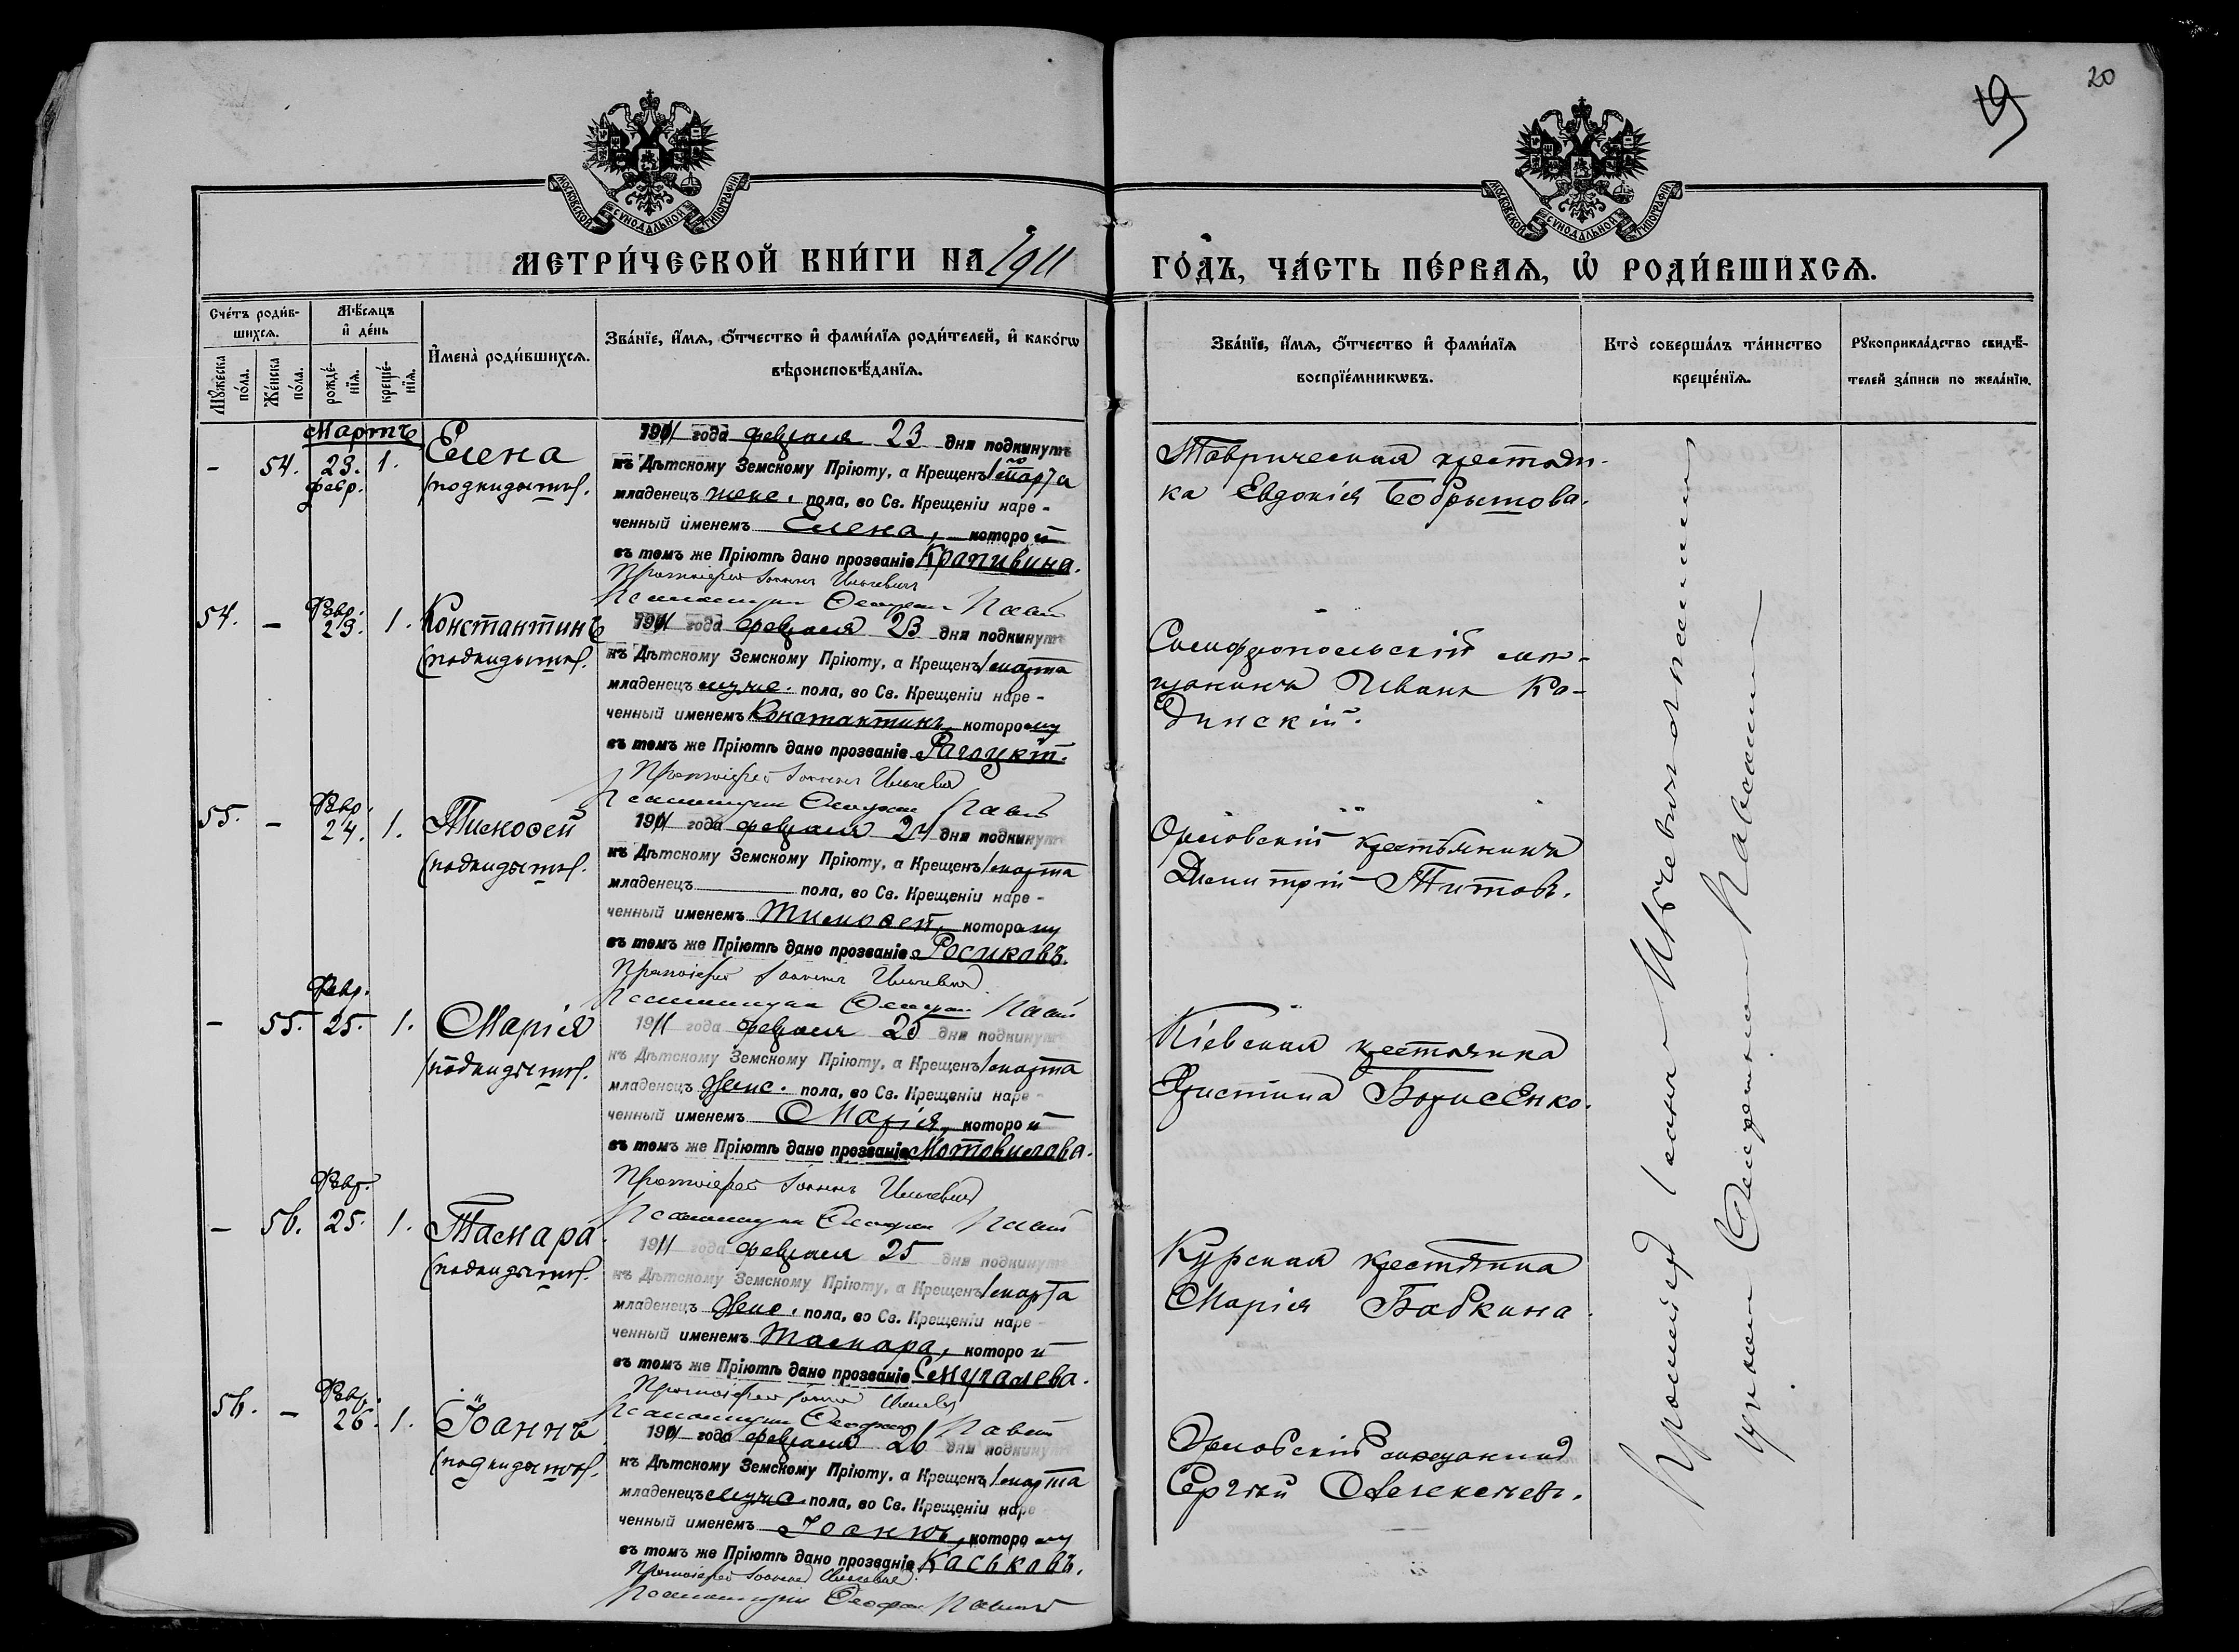 20
19
МОСКОВСКОЙ СѴНОДАЛЬНОЙ ТИПОГРАФІИ
МОСКОВСКОЙ СѴНОДАЛЬНОЙ ТИПОГРАФІИ
МЕТРИ́ЧЕСКОЙ КНИ́ГИ НА 1911
ГО́ДЪ, ЧА́СТЬ ПЕ́РВАѦ, Ѡ҆ РОДИ́ВШИХСѦ.
Сче́тъ роди́в-
шихсѧ.
Мꙋ́жеска
по́ла.
Же́нска
по́ла.
Мѣ́сѧцъ
и҆ де́нь
рожде́-
нїѧ.
креще́-
нїѧ.
И҆мена̀ роди́вшихсѧ.
Зва́нїе, и҆́мѧ, ѻ҆́тчество и҆ фами́лїѧ роди́телей, и҆ како́гѡ
вѣроисповѣ́данїѧ.
Зва́нїе, и҆́мѧ, ѻ҆́тчество и҆ фами́лїѧ
воспрїе́мникѡвъ.
Кто̀ соверша́лъ та́инство
креще́нїѧ.
Рꙋкоприкла́дство свидѣ́-
телей за́писи по жела́нїю.
Мартъ
- 54. 23. 1. Елена
февр.
(подкидышъ).
1911 года февраля 23 дня подкинутъ
къ Дѣтскому Земскому Пріюту, а Крещенъ 1 марта
младенецъ женс. пола, во Св. Крещеніи наре-
ченный именемъ Елена, которой
въ томъ же Пріютѣ дано прозваніе Крапивина.
Протоіерей Іоаннъ
Псаломщикъ
Таврическая крестьян-
ка Евдокія
Февр.
54. - 23. 1. Константинъ
(подкидышъ).
1911 года февраля 23 дня подкинутъ
къ Дѣтскому Земскому Пріюту, а Крещенъ 1 марта
младенецъ мужс. пола, во Св. Крещеніи наре-
ченный именемъ Константинъ, которому
въ томъ же Пріютѣ дано прозваніе
Протоіерей Іоаннъ
Псаломщикъ
Симферопольскій мѣ-
щанинъ Иванъ Ко-
динскій.
Февр.
55. - 24. 1. Тимофей
(подкидышъ).
1911 года февраля 24 дня подкинутъ
къ Дѣтскому Земскому Пріюту, а Крещенъ 1 марта
младенецъ пола, во Св. Крещеніи наре-
ченный именемъ Тимофей, которому
въ томъ же Пріютѣ дано прозваніе Росиковъ.
Протоіерей Іоаннъ
Псаломщикъ
Орловскій крестьянинъ
Димитрій Титовъ.
Февр.
- 55. 25. 1. Марія
(подкидышъ).
1911 года февраля 25 дня подкинутъ
къ Дѣтскому Земскому Пріюту, а Крещенъ 1 марта
младенецъ женс. пола, во Св. Крещеніи наре-
ченный именемъ Марія, которой
въ томъ же Пріютѣ дано прозваніе Мотовилова.
Протоіерей Іоаннъ
Псаломщикъ
Кіевская крестьянка
Христина Борисенко.
Февр.
- 56. 25. 1. Тамара
(подкидышъ).
1911 года февраля 25 дня подкинутъ
къ Дѣтскому Земскому Пріюту, а Крещенъ 1 марта
младенецъ женс. пола, во Св. Крещеніи наре-
ченный именемъ Тамара, которой
въ томъ же Пріютѣ дано прозваніе Смугалева.
Протоіерей Іоаннъ
Псаломщикъ
Курская крестьянка
Марія Бабкина
Февр.
56. - 26. 1. Іоаннъ
(подкидышъ).
1911 года февраля 26 дня подкинутъ
къ Дѣтскому Земскому Пріюту, а Крещенъ 1 марта
младенецъ мужс. пола, во Св. Крещеніи наре-
ченный именемъ Іоаннъ, которому
въ томъ же Пріютѣ дано прозваніе Каськовъ.
Протоіерей Іоаннъ
Псаломщикъ
Орловскій мѣщанинъ
Сергѣй Алексѣевъ.
Протоіерей Іоаннъ